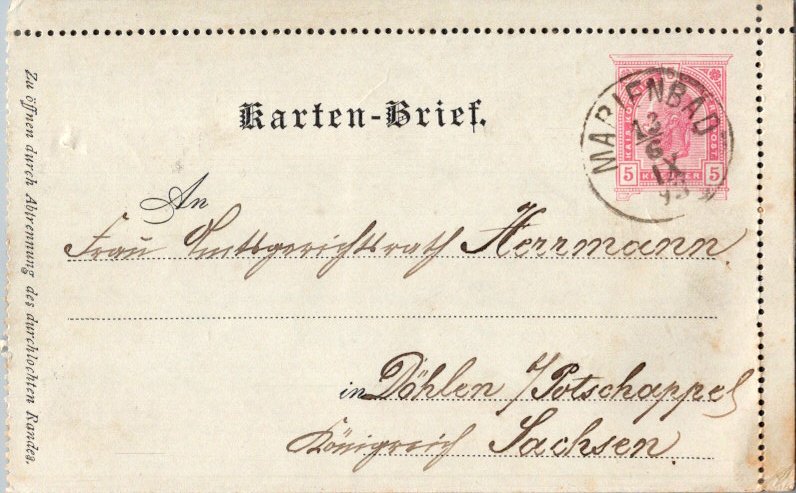 Karten-Brief.
MARIENBAD
13/6
IX
5 KREUZER 5
An
Frau Amtsgerichtsrath Herrmann
in Döhlen b/Potschappel
Königreich Sachsen.
Zu öffnen durch Abtrennung des durchlochten Randes.